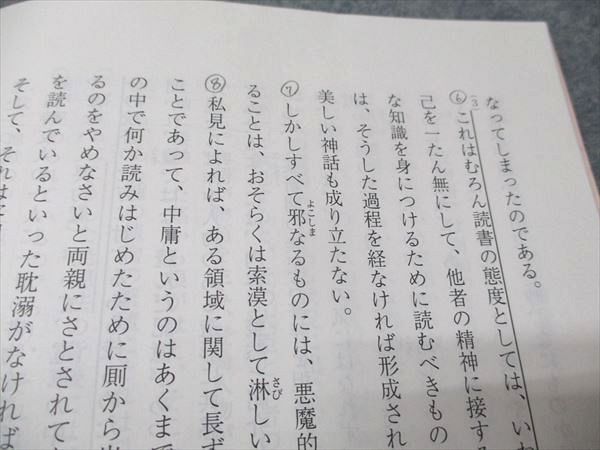 なってしまったのである。
3
⑥これはむろん読書の態度としては、いわ
己を一たん無にして、他者の精神に接する
な知識を身につけるために読むべきもの
は、そうした過程を経なければ形成され
美しい神話も成り立たない。
⑦しかしすべて邪なるものには、悪魔的
よこしま
ることは、おそらくは索漠として淋しい
さび
⑧私見によれば、ある領域に関して長ず
ことであって、中庸というのはあくまで
の中で何か読みはじめたために厠から出
るのをやめなさいと両親にさとされて
を読んでいるといった耽溺がなければ
そして、それは